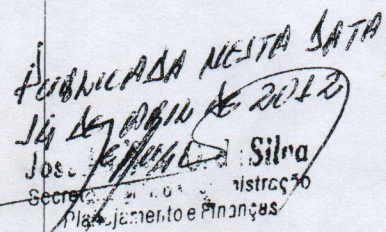 PUBLICADA NESTA DATA
14 DE ABRIL DE 2012
José Silva
Secretário Administração
Planejamento e Finanças